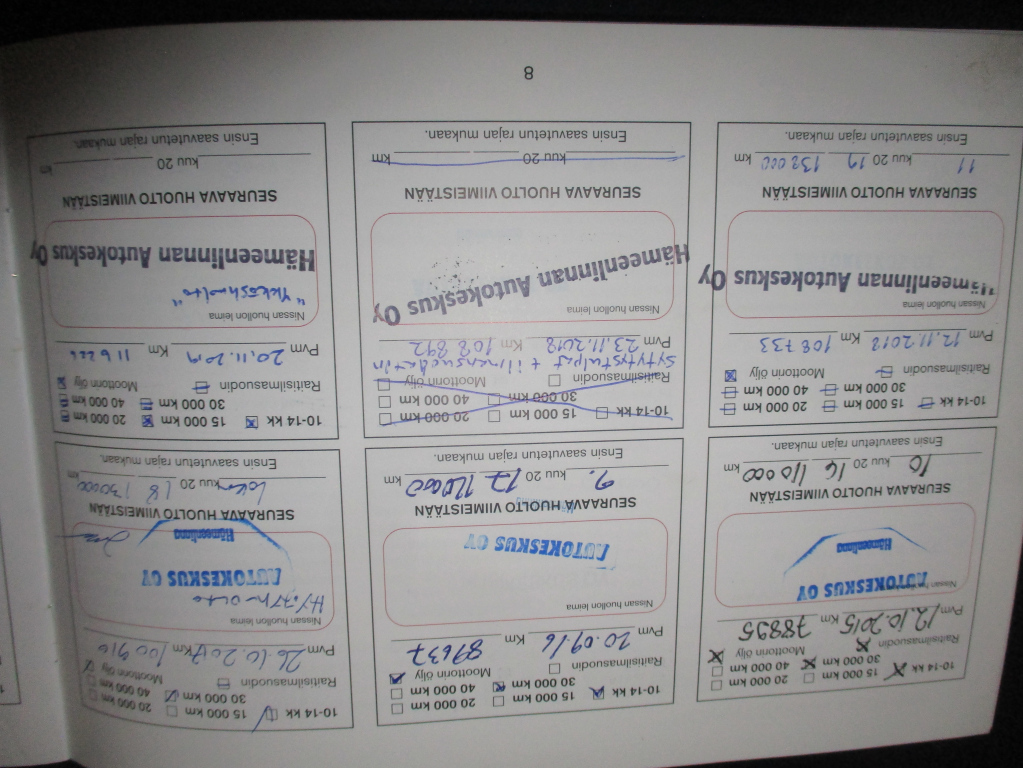 10-14 kk 15 000 km 20 000 km
30 000 km 40 000 km
Raitisilmasuodin Moottorin öljy
Pvm 12.10.2015 Km 78895
Nissan huollon leima
AUTOKESKUS OY
Hämeenlinna
SEURAAVA HUOLTO VIIMEISTÄÄN
10 kuu 20 16 110 000 km
Ensin saavutetun rajan mukaan.
10-14 kk 15 000 km 20 000 km
30 000 km 40 000 km
Raitisilmasuodin Moottorin öljy
Pvm 20.09.16 Km 89637
Nissan huollon leima
AUTOKESKUS OY
SEURAAVA HUOLTO VIIMEISTÄÄN
9. kuu 20 17 120000 km
Ensin saavutetun rajan mukaan.
10-14 kk 15 000 km 20 000 km
30 000 km 40 000 km
Raitisilmasuodin Moottorin öljy
Pvm 26.10.2017 Km 100910
Nissan huollon leima
AUTOKESKUS OY
Hämeenlinna
SEURAAVA HUOLTO VIIMEISTÄÄN
kuu 20 18 130000 km
Ensin saavutetun rajan mukaan.
10-14 kk 15 000 km 20 000 km
30 000 km 40 000 km
Raitisilmasuodin Moottorin öljy
Pvm 12.11.2018 Km 108733
Nissan huollon leima
Hämeenlinnan Autokeskus Oy
SEURAAVA HUOLTO VIIMEISTÄÄN
11 kuu 20 19 138 000 km
Ensin saavutetun rajan mukaan.
10-14 kk 15 000 km 20 000 km
30 000 km 40 000 km
Raitisilmasuodin Moottorin öljy
Sytytystulpat + ilmansuodatin
Pvm 23.11.2018 Km 108 892
Hämeenlinnan Autokeskus Oy
SEURAAVA HUOLTO VIIMEISTÄÄN
kuu 20 km
Ensin saavutetun rajan mukaan.
10-14 kk 15 000 km 20 000 km
30 000 km 40 000 km
Raitisilmasuodin Moottorin öljy
Pvm 20.11.2019 Km
Nissan huollon leima
"Ykköshuolto"
Hämeenlinnan Autokeskus Oy
SEURAAVA HUOLTO VIIMEISTÄÄN
kuu 20 km
Ensin saavutetun rajan mukaan.
8